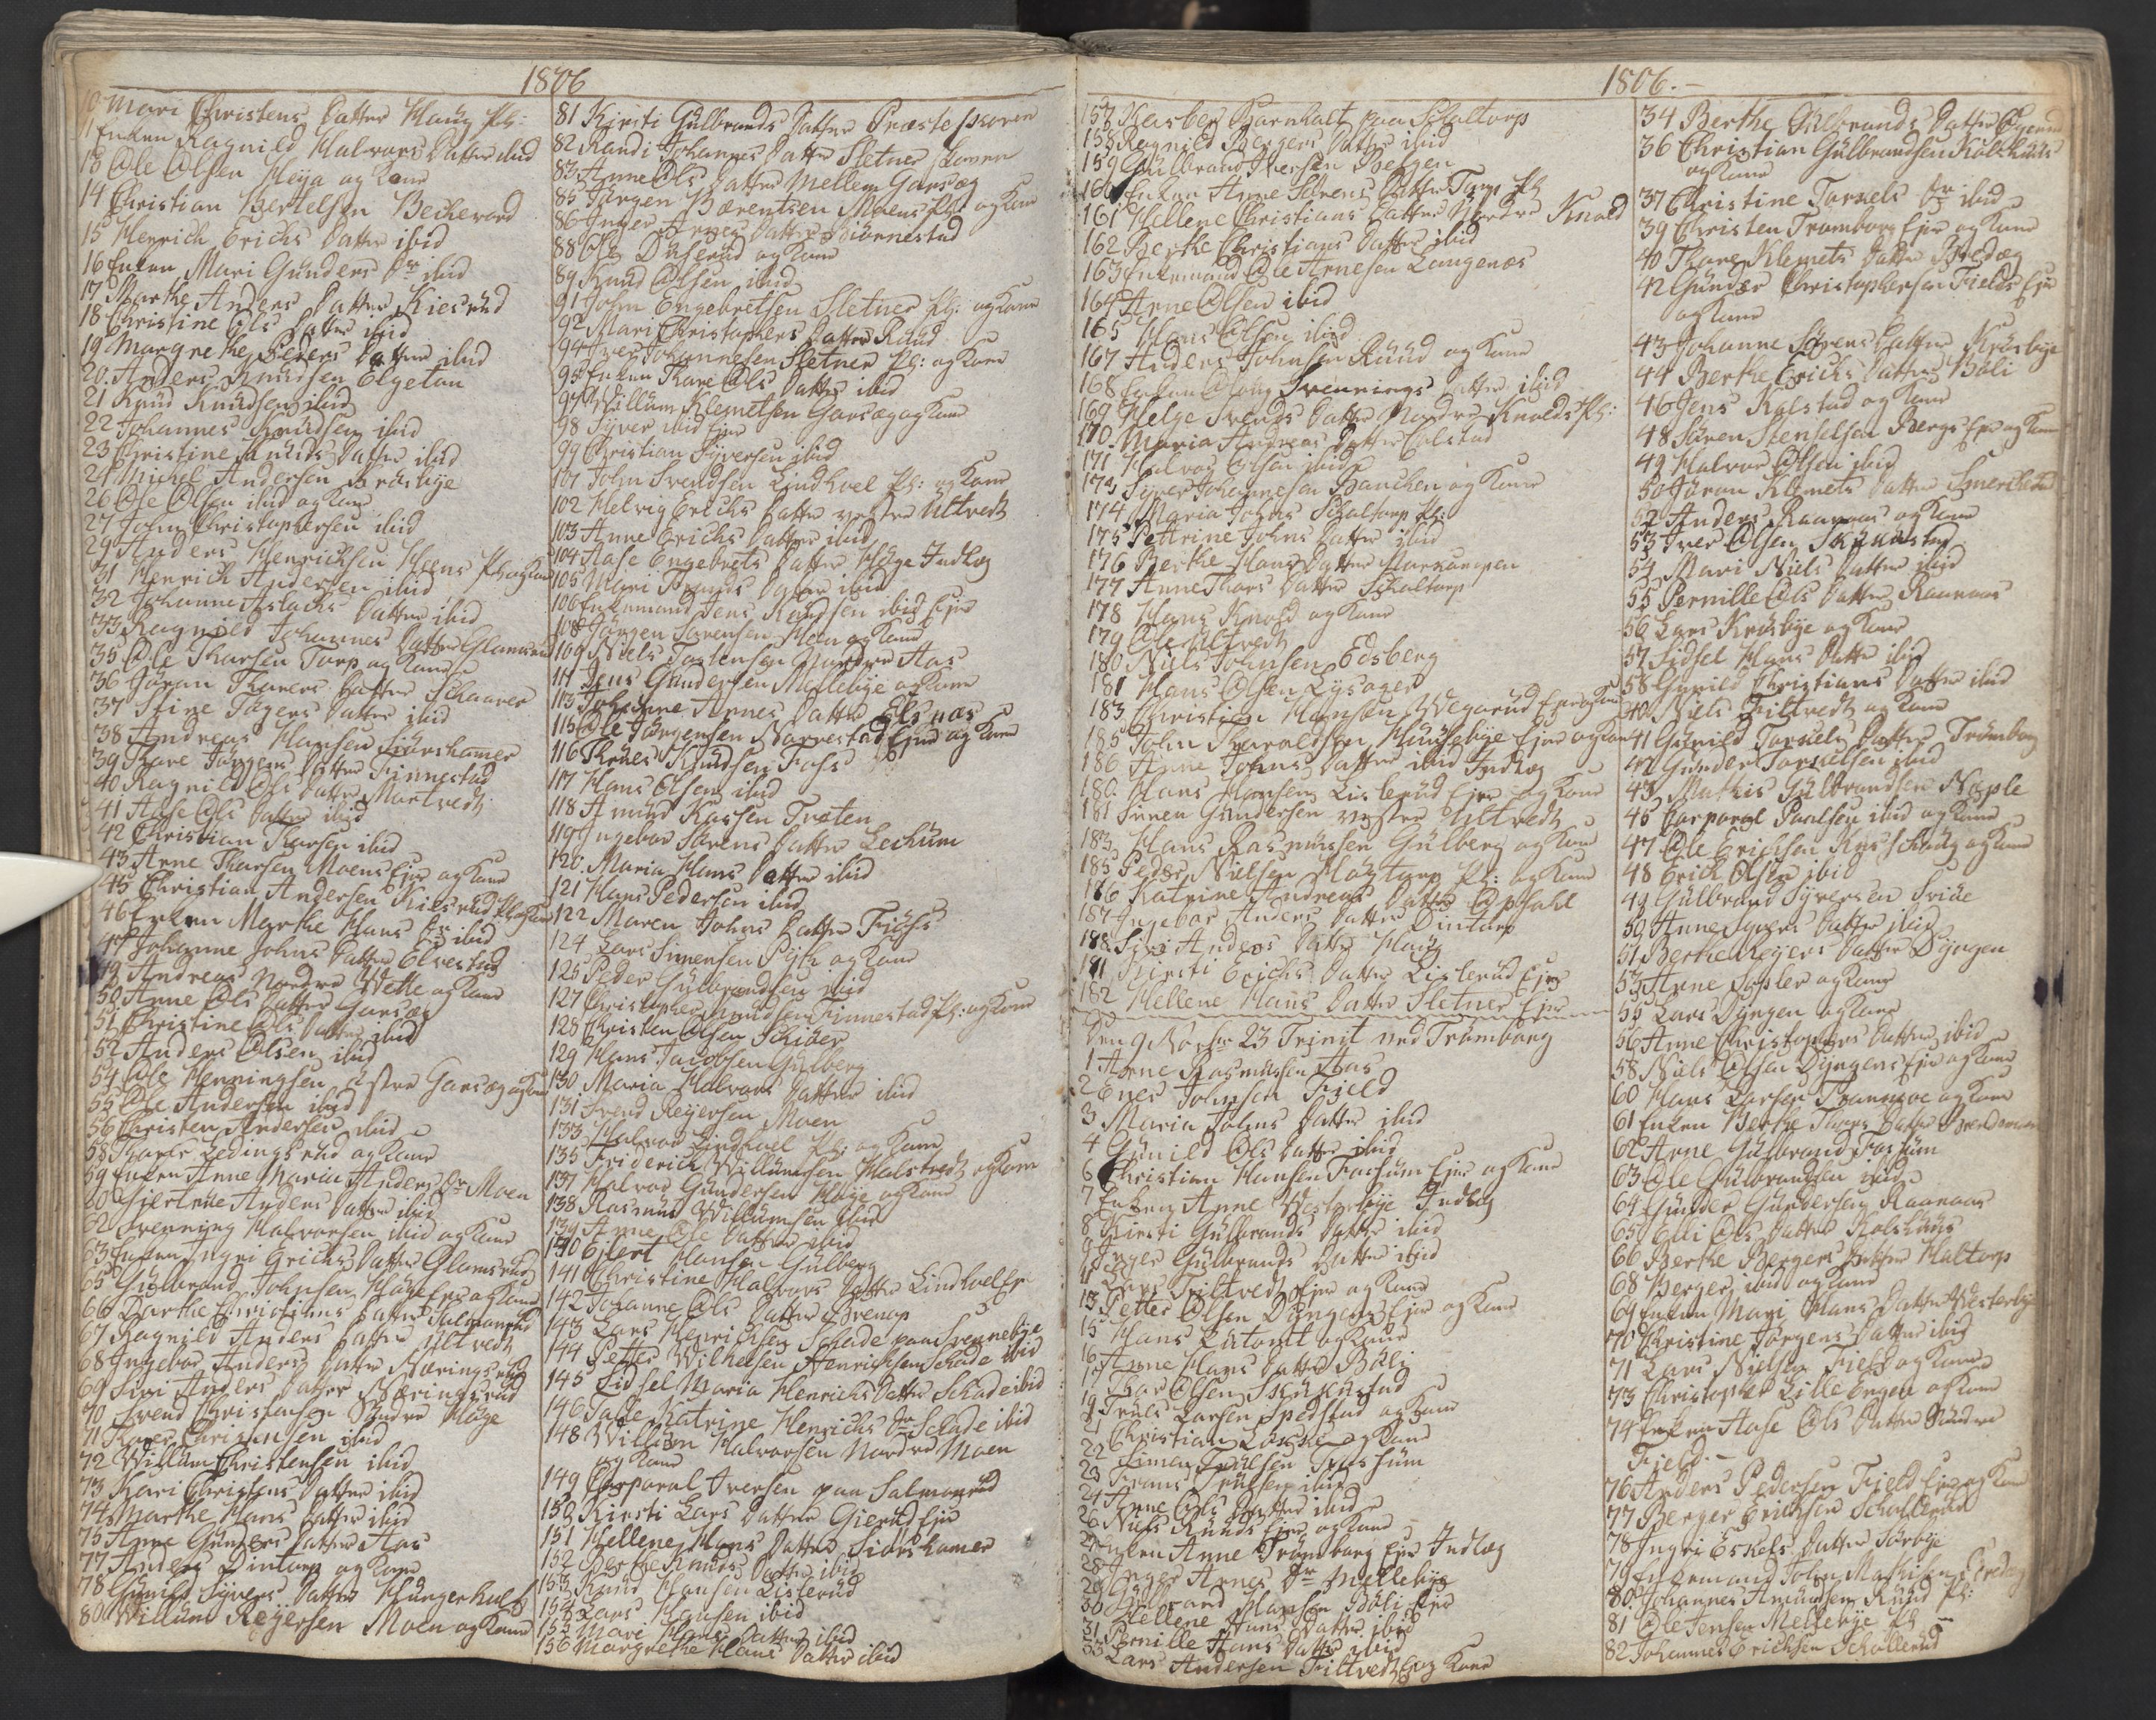 1806
10 Mari Christens Datter Haug Pl:
11 Enken Ragnild Halvors Datter ibid
13 Ole Olsen Heÿa og Kone
14 Christian Bertelsen Beckevord
15 Henrich Erichs Datter ibid
16 Enken Mari Gunders Dr ibid
17 Marthe Anders Datter Kiesrud
18 Christine Ols Datter ibid
19 Margrethe Peders Datter ibid
20. Anders Knudsen Elgetun
21 Knud Knudsen ibid
22 Johannes Knudsen ibid
23 Christine Knuds Datter ibid
24 Michel Andersen Kråsbÿe
26 Ole Olsen ibid og Kone
27 John Christophersen ibid
29 Anders Henrichsen Heens Pl: og Kone
31 Henrich Andersen ibid
32 Johanne Aslachs Datter ibid
33 Ragnild Johannes Datter Glamsrud
35 Ole Tharsen Torp og Kone
36 Jøran Thores Datter Schaarer
37 Stine Tågers Datter ibid
38 Andreas Hansen Siørshamer
39 Thore Jørgens Datter Finnestad
40 Ragnild Ols Datter Martvedt
41 Aase Ols Datter ibid
42 Christian Tharsen ibid
43 Arne Tharsen Moens Eier og Kone
45 Christian Andersen Kiesrud Pl: og Kone
46 Enken Marthe Hans Dr ibid
47 Johanne Johns Datter Elvestad
49 Andreas Nordre Wette og Kone
50 Anne Ols Datter Garsæg
51 Christine Ols Datter ibid
52 Anders Olsen ibid
54 Ole Henningsen østre Garsæg og Kone
55 Ole Andersen ibid
56 Christen Andersen ibid
58 Thorer Ledingsrud og Kone
59 Enken Anne Maria Anders Dr Moen
60 Giertrue Anders Datter ibid
62 Svenning Halvorsen ibid og Kone
63 Enken Ingri Erichs Datter Glamsrud
65 Gulbrand Johnsen Haug Eier og Kone
66 Dorthe Christians Datter Salmonrud
67 Ragnild Anders Datter Ultvedt
68 Ingebor Anders Datter Næringsrud
69 Siri Anders Datter Næringsrud
70 Svend Christensen Søndre Høge
71 Thores Christensen ibid
72 Willum Christensen ibid
73 Kari Christens Datter ibid
74 Marthe Hans Datter ibid
75 Anne Gunders Datter Aas
77 Anders Dintorp og Kone
78 Gunild Sÿvers Datter Hungerholt
80 Willum Reÿersen Moen og Kone
81 Kirsti Gulbrands Datter Præsteskoven
82 Randi Johannes Datter Sletner skoven
83 Anne Ols Datter Mellem Garsæg
85 Jørgen Bærentsen Moens Pl: og Kone
86 Inger Iver Datter Biørnestad
88 Ole Duserud og Kone
89 Knud Olsen ibid
91 John Engebretsen Sletner Pl: og Kone
92 Mari Christophers Datter Ruud
94 Iver Johannesen Sletner Pl: og Kone
95 Enken Thore Ols Datter ibid
97 Willum Klemetsen Garsæg og Kone
98 Sÿver ibid Eier
99 Christian Sÿversen ibid
101 John Svendsen Lindhoel Pl: og Kone
102 Helvig Erichs Datter vestre Ultvedt
103 Anne Erichs Datter ibid
104 Aase Engebrets Datter Høge Indlæg
105 Mari Svends Datter ibid
106 Enkemand Jens Knudsen ibid Eier
108 Jørgen Sørensen Heen og Kone
109 Niels Torstensen Nordre Aas
111 Jens Gundersen Møllebÿe og Kone
113 Johanne Arnes Datter Elsnæs
115 Ole Jørgensen Narvestad Eier og Kone
116 Thrues Knudsen Foss
117 Hans Olsen ibid
118 Amund Kassen Træten
119 Ingebor Sørens Datter Lechum
120. Maria Hans Datter ibid
121 Hans Pedersen ibid
122 Maren Johns Datter Friøss
124 Lars Simensen Pÿth og Kone
125 Peder Gulbrandsen ibid
127 Christopher Knudsen Finnestad Pl: og Kone
128 Christen Olsen Skider
129 Hans Jacobsen Gulberg
130 Maria Halvors Datter ibid
131 Svend Reÿersen Moen
133 Halvor Lindhoel Pl: og Kone
135 Friderich Willumsen Halstvedt og Kone
137 Halvor Gundersen Høÿe og Kone
138 Rasmus Willumsen ibid
139 Anne Ole Datter ibid
140 Eilert Hansen Gulberg
141 Christine Halvors Datter Lindhoel Eier
142 Johanne Ols Datter Grenop
143 Lars Henrichsen Schade paa Svennebÿe
144 Petter Wilhelsen Henrichsen Schade ibid
145 Sidsel Maria Henrichs Datter Schade ibid
146 Salle Katrine Henrichs Dr Schade ibid
148 Willum Halvorsen Nordre Moen
og Kone
149 Corporal Iversen paa Salmonrud
150 Kirsti Lars Datter Gierud Eier
151 Hellene Hans Datter Siørshamer
152 Berthe Knuds Datter ibid
153 Knud Hansen Listerud
154 Lars Hansen ibid
155 Mari Hans Datter ibid
156 Margrethe Hans Datter ibid
1806.-
157 Karber Barnholt paa Schaltorp
158 Ragnild Bergers Datter ibid
159 Gulbrand Iversen Belgen
160 Enken Anne Sørens Datter Torp Pl
161 Hellene Christians Datter Nordre Knold
162 Berthe Christians Datter ibid
163 Enkemand Ole Arnesen Langenæs
164 Arne Olsen ibid
165 Hans Olsen ibid
167 Anders Johnsen Ruud og Kone
168 Enken Svennings Datter ibid
169 Helge Svends Datter Nordre Knolds Pl:
170. Maria Andreas Datter Colstad
171 Halvor Olsen ibid
173 Sÿver Johannesen Banchen og Kone
174 Maria Johns Schaltorp Pl:
175 Pettrine Johns Datter ibid
176 Berthe Hans Datter
177 Anne Thors Datter Schaltorp
178 Hans Knold og Kone
179 Ole Ultvedt
180 Niels Johnsen Edsberg
181 Hans Olsen Lÿsager
183 Christian Hansen Wegarud Eier og Kone
185 John Haraldsen Huusebÿe Eier og Kone
186 Anne Johns Datter ibid Indlæg
180. Hans Hansen Listerud Eier og Kone
181 Simen Gundersen vestre Ultvedt
183 Hans Rasmussen Gulberg og Kone
185 Peder Nielsen Høÿtorp Pl: og Kone
186 Katrine Andreas Datter Opsahl
187 Ingebor Anders Datter Dintorp
188 Siri Anders Datter Haug
181 Kirsti Erichs Datter Listerud Eier
182 Hellene Hans Datter Sletner Eier
Den 9 Novbr 23 Trinit ved Trømborg
1 Arne Rasmussen Aas
2 Ener Johnsen Fjeld
3 Maria Johns Datter ibid
4 Gunild Ols Datter ibid
6 Christian Hansen Fossum Eier og Kone
7 Enken Anne Westerbÿe Indlæg
8 Kirsti Gulbrands Datter ibid
9 Inger Gulbrands Datter ibid
11 Lars Tiltvedt Eier og Kone
13 Petter Olsen Dÿngen Eier og Kone
15 Hans Lutomt og Kone
16 Anne Hans Datter Bøli
17 Thor Olsen Skuknstad
19 Truls Larsen Spedstad og Kone
21 Christian Løkke og Kone
22 Simen Truelsen Fossum
23 Frans Truelsen ibid
24 Anne Ols Datter ibid
26 Niels Ruuds Eier og Kone
27 Enken Anne Trømborg Eier Indlæg
28 Inger Arnes Dr Møllebÿe
29 Gulbrand Hansen Bøli Eier
30 Hellene Hans Datter ibid
31 Pernille Hans Datter ibid
33 Lars Andersen Tiltvedt Eier og Kone
1806.-
34 Berthe Gulbrands Datter
36 Christian Gulbrandsen Kolshuus
og Kone
37 Christine Torkels Dr ibid
39 Christen Tromborg Eier og Kone
40 Thore Klemets Datter Bredeg
42 Gunder Christophersen Fields Eier
og Kone
43 Johanne Sørens Datter Kråsbÿe
44 Berthe Erichs Datter Bøli
46 Jens Kolstad og Kone
48 Søren Stenselsen Bergs Eier og Kone
49 Halvor Olsen ibid
50 Jøran Klemets Datter Smerchstad
52 Anders Raanaas og Kone
53 Iver Olsen Skukustad
54 Mari Niels Datter ibid
55 Pernille Ols Datter Raanaas
56 Lars Kråsbÿe og Kone
57 Sidsel Hans Datter ibid
58 Gunild Christians Datter ibid
40 Niels Tiltvedt og Kone
41 Gunild Torkels Datter Trømborg
42 Gunder Torkelsen ibid
43 Mathis Gulbrandsen Næple
45 Corporal Paulsen ibid og Kone
47 Ole Erichsen og Kone
48 Erich Olsen ibid
49 Gulbrand Sÿversen Sviue
50 Anne Iuers Datter ibid
51 Berthe Reÿers Datter Dÿngen
53 Arne Sopler og Kone
55 Lars Dÿngen og Kone
56 Anne Christophers Datter ibid
58 Niels Olsen Dÿngens Eier og Kone
60 Hans Larsen og Kone
61 Enken Berthe Datter
62 Arne Gulbrand Fossum
63 Ole Gulbrandsen ibid
64 Gunder Gundersen Raanaas
65 Elli Ols Datter Kolshuus
66 Berthe Bergers Datter Haltorp
68 Berger ibid og Kone
69 Enken Mari Hans Datter Westerbÿe
70 Christine Jørgens Datter ibid
71 Lars Nielsen Field og Kone
73 Christopher Lille Engen og Kone
74 Enken Aase Ols Datter Søndre
Field.-
76 Anders Pedersen Field Eier og Kone
77 Berger Erichsen Schollerud
78 Ingri Eskels Datter Sørbÿe
79 Enkemand John Mathisen
80. Johannes Amundsen Ruud Pl:
81 Ole Jensen Mellebÿe Pl -
82 Johannes Erichsen Schollerud